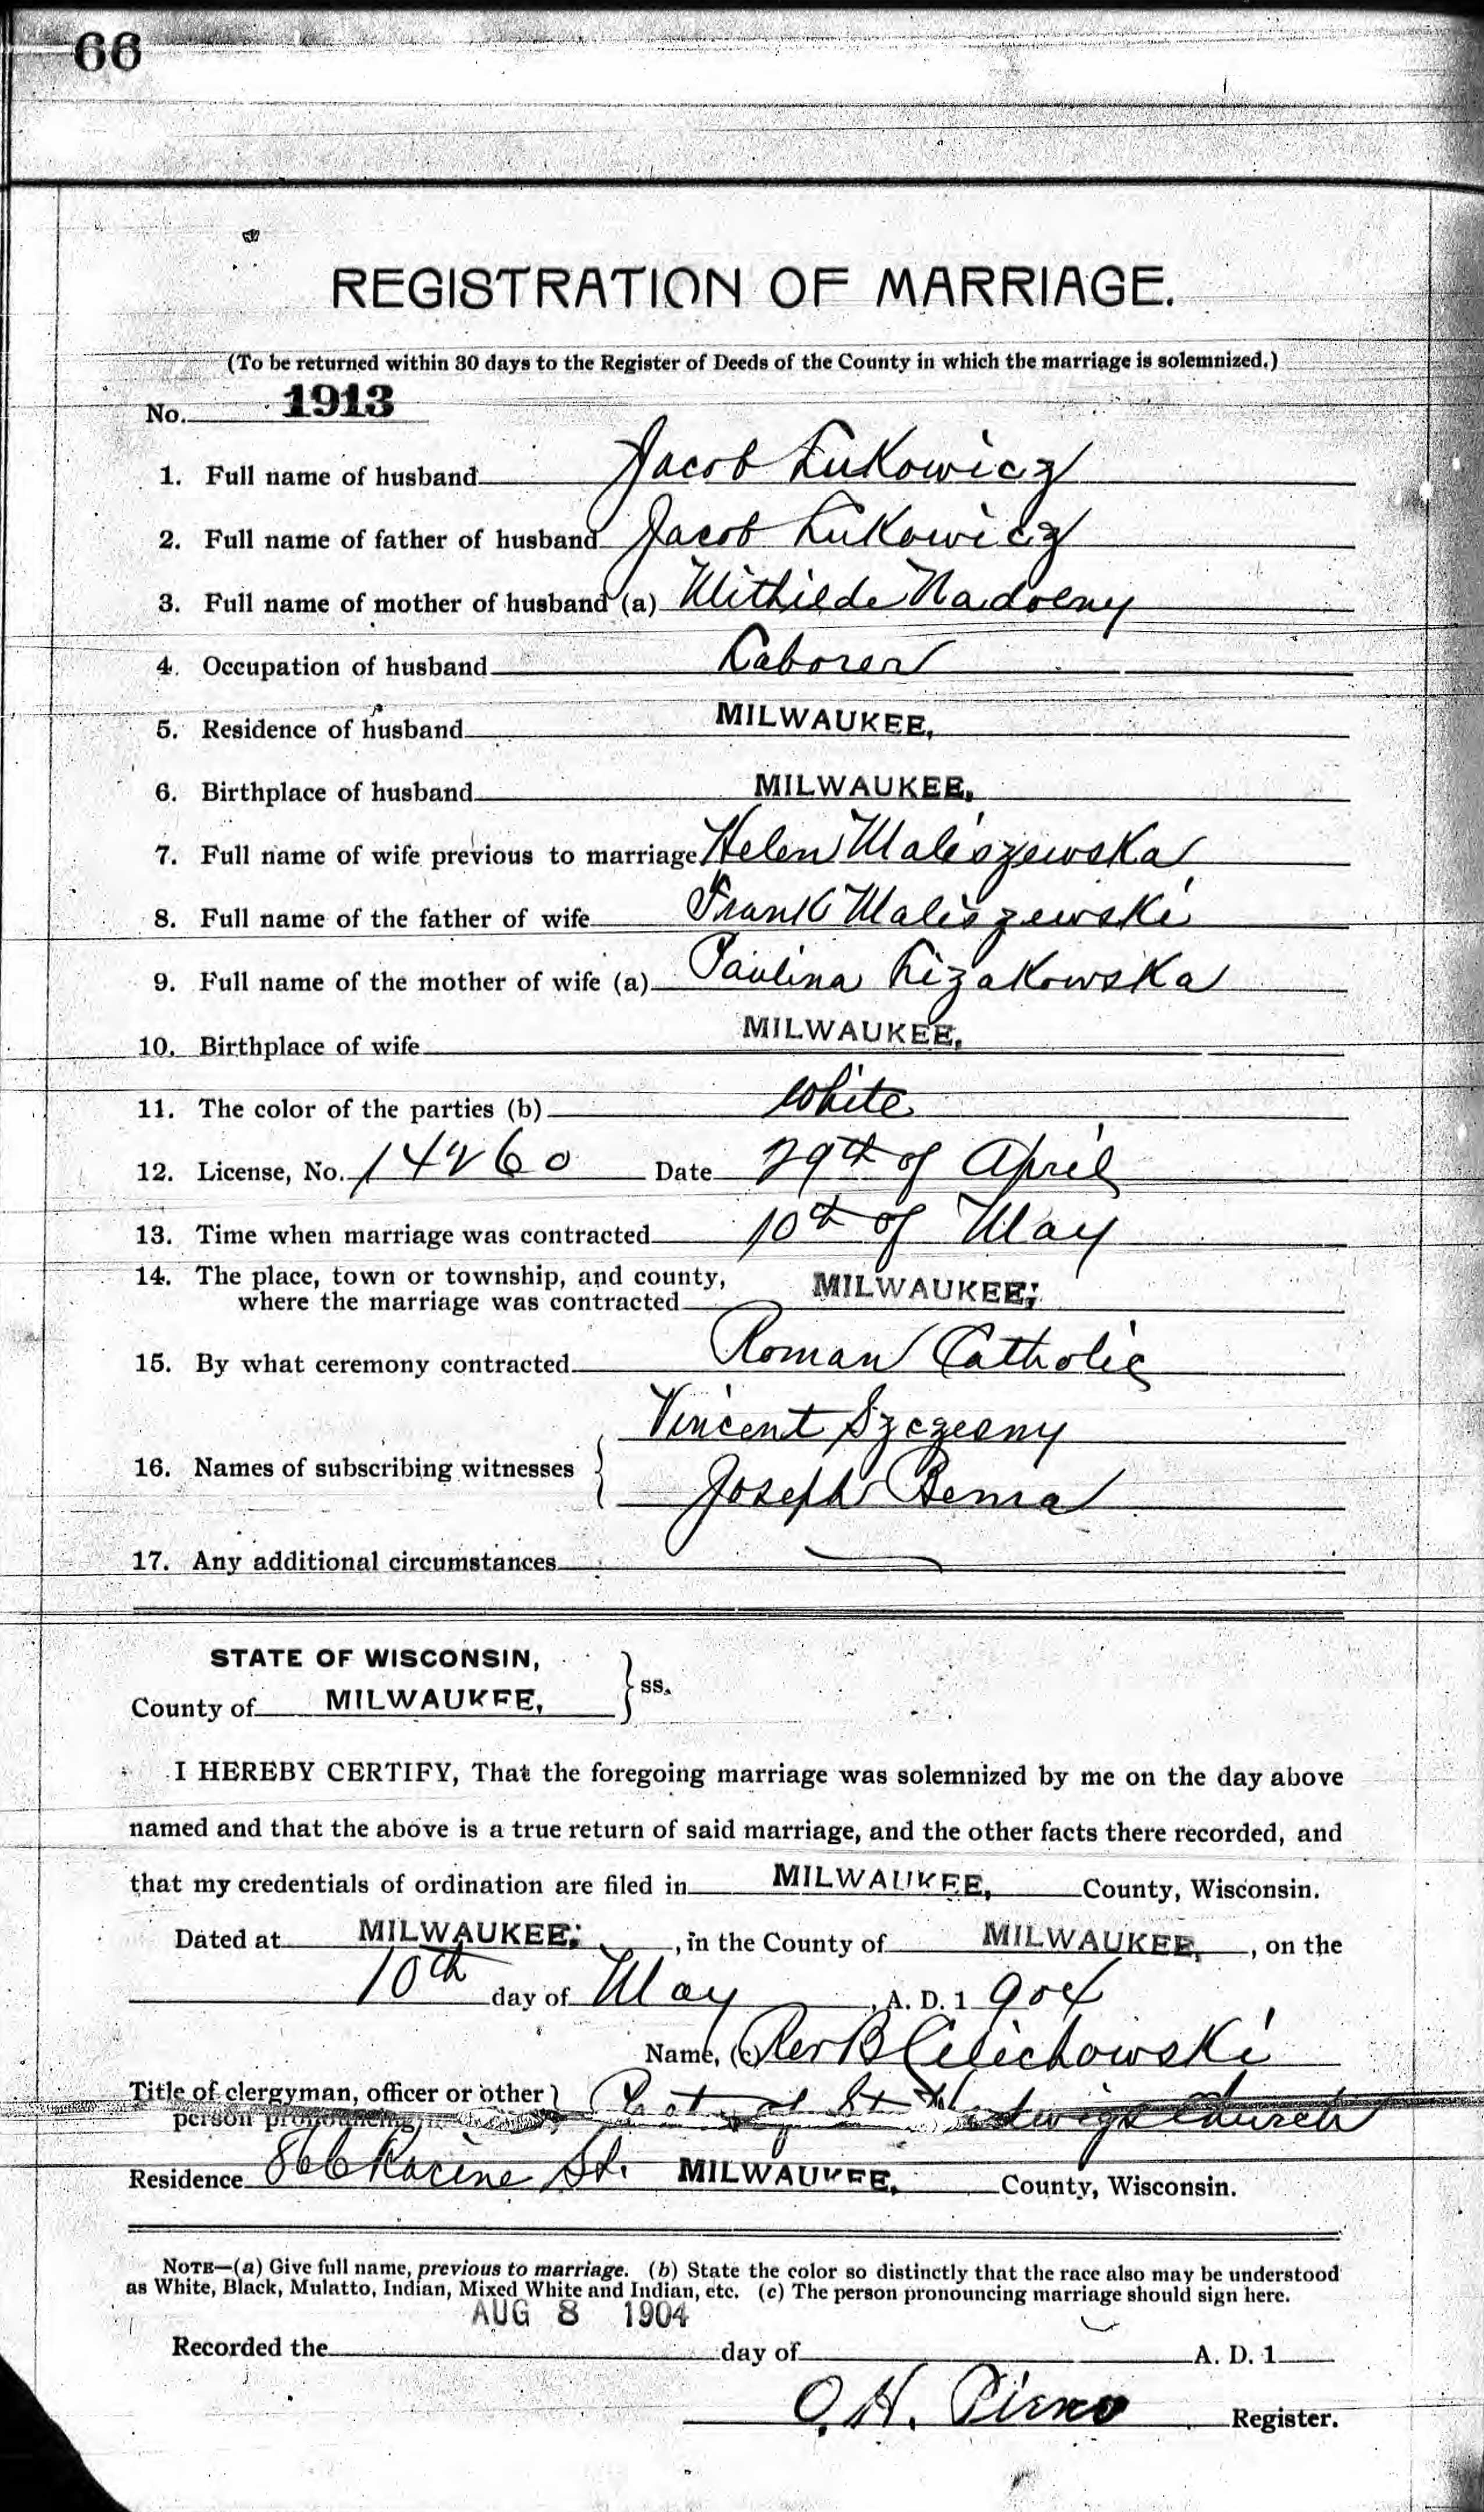 66
REGISTRATION OF MARRIAGE.
(To be returned within 30 days to the Register of Deeds of the County in which the marriage is solemnized.)
No. 1913
1. Full name of husband Jacob Lukowicz
2. Full name of father of husband Jacob Lukowicz
3. Full name of mother of husband (a) Mithilde Nadolny
4. Occupation of husband Laborer
5. Residence of husband MILWAUKEE,
6. Birthplace of husband MILWAUKEE,
7. Full name of wife previous to marriage Helen Maliszewska
8. Full name of the father of wife Frank Maliszewski
9. Full name of the mother of wife (a) Paulina Lizakowska
10. Birthplace of wife MILWAUKEE,
11. The color of the parties (b) White
12. License, No. 14260 Date 29th of April
13. Time when marriage was contracted 10th of May
14. The place, town or township, and county,
where the marriage was contracted MILWAUKEE;
15. By what ceremony contracted Roman Catholic
Vincent Szczesny
16. Names of subscribing witnesses
Joseph Bema
17. Any additional circumstances
STATE OF WISCONSIN,
County of MILWAUKEE, ss.
I HEREBY CERTIFY, That the foregoing marriage was solemnized by me on the day above
named and that the above is a true return of said marriage, and the other facts there recorded, and
that my credentials of ordination are filed in MILWAUKEE, County, Wisconsin.
Dated at MILWAUKEE; , in the County of MILWAUKEE, , on the
10th day of May , A. D. 1904
Name, (c) Rev B Celichowski
Title of clergyman, officer or other
person pronouncing of St Hedwigs Church
Residence 866 Racine St. MILWAUKEE, County, Wisconsin.
NOTE—(a) Give full name, previous to marriage. (b) State the color so distinctly that the race also may be understood
as White, Black, Mulatto, Indian, Mixed White and Indian, etc. (c) The person pronouncing marriage should sign here.
AUG 8 1904
Recorded the day of A. D. 1
O. H. Register.